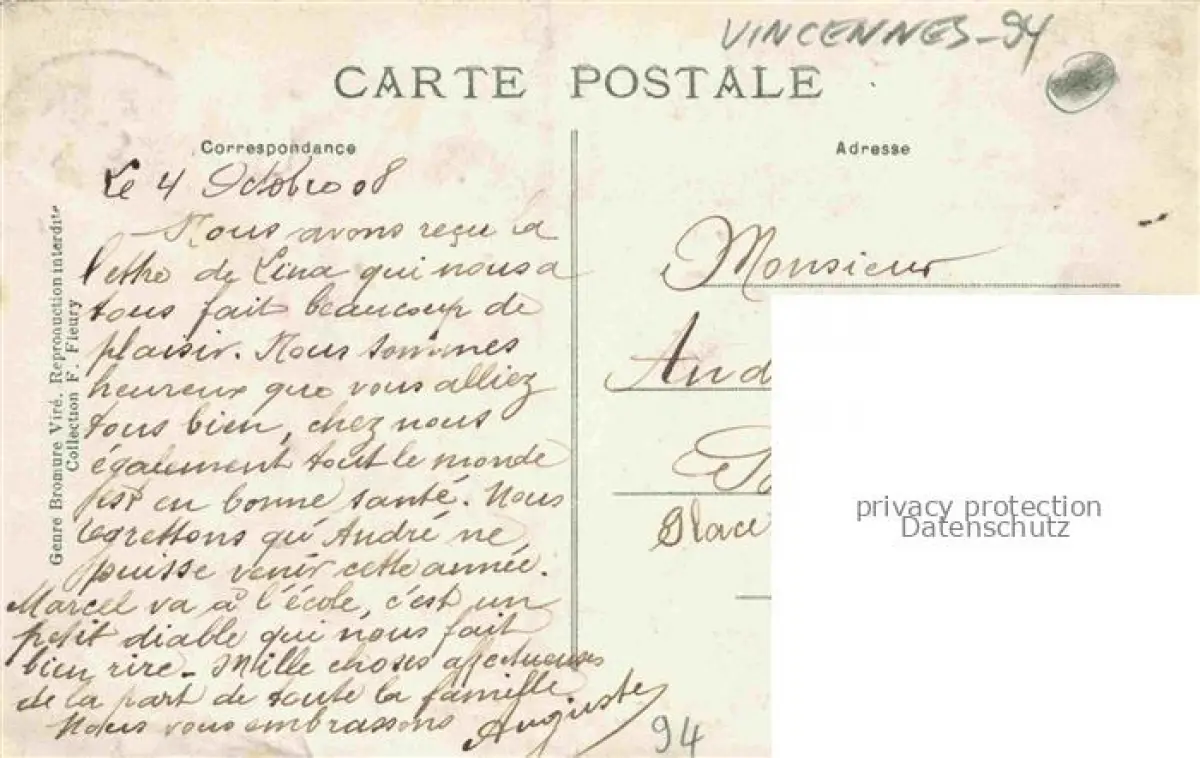 VINCENNES-94
CARTE POSTALE
Correspondance
Adresse
Le 4 Octobre 08
Nous avons reçu la
lettre de Lina qui nous a
tous fait beaucoup de
plaisir. Nous sommes
heureux que vous alliez
tous bien, chez nous
également tout le monde
est en bonne santé. Nous
regrettons qu'André ne
puisse venir cette année.
Marcel va à l'école, c'est un
petit diable qui nous fait
bien rire. Mille choses affectueuses
de la part de toute la famille
Nous vous embrassons
Auguste
Monsieur
And
Place
94
Genre Bromure Viré. Reproduction interdite
Collection F. Fleury
privacy protection
Datenschutz